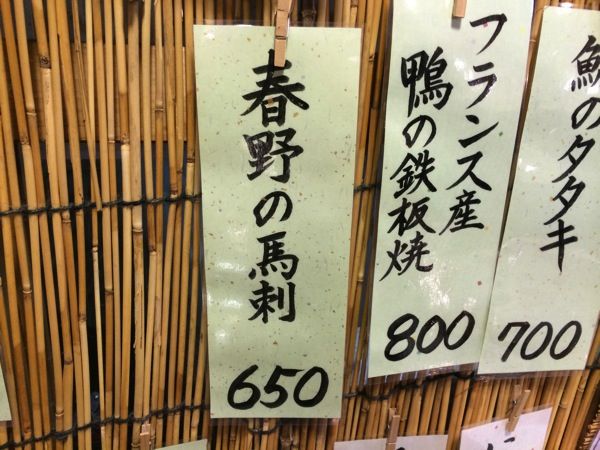 春野の馬刺
650
フランス産
鴨の鉄板焼
800
のタタキ
700